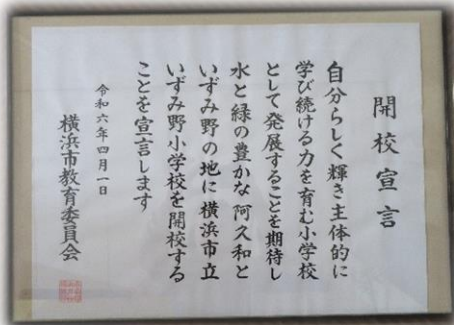 開校宣言
自分らしく輝き主体的に
学び続ける力を育む小学校
として発展することを期待し
水と緑の豊かな阿久和と
いずみ野の地に横浜市立
いずみ野小学校を開校する
ことを宣言します
令和六年四月一日
横浜市教育委員会